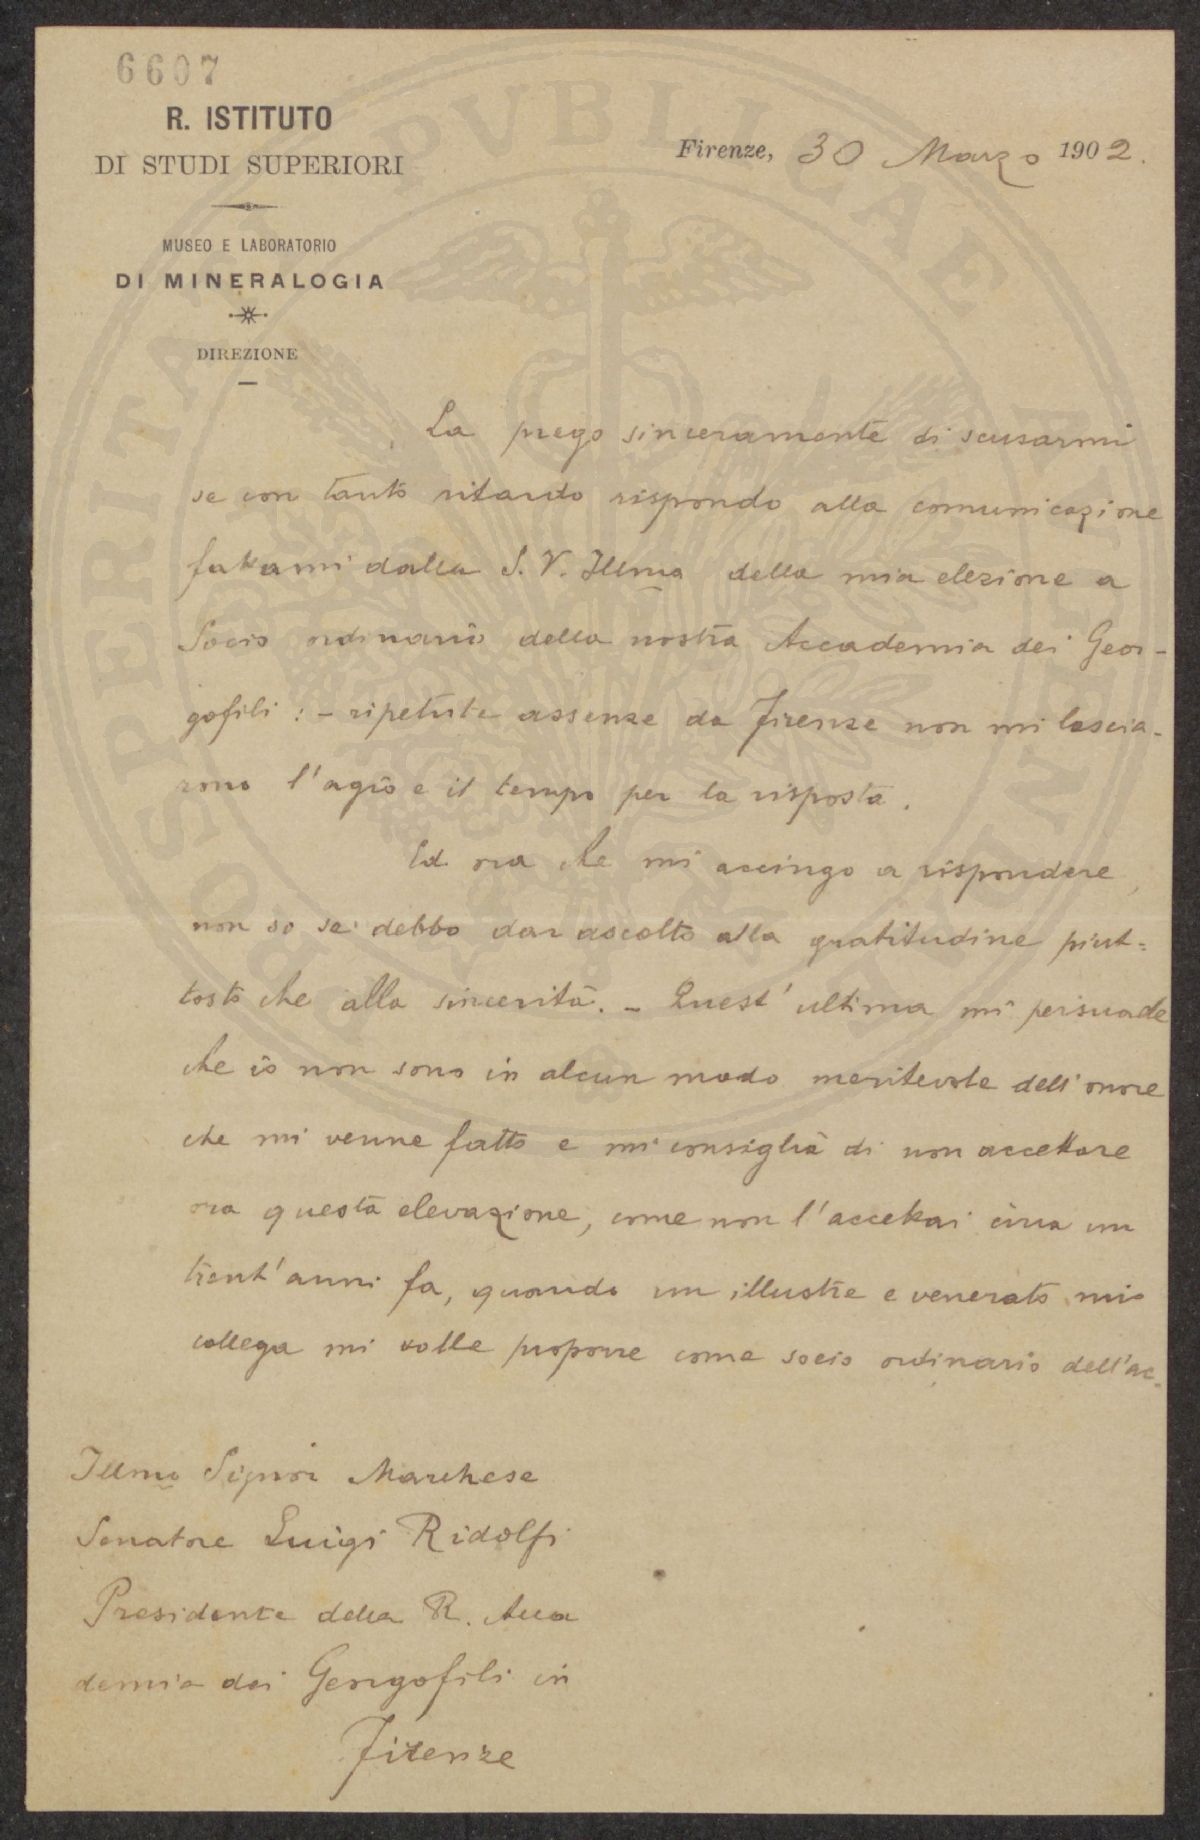 6607
R. ISTITUTO
DI STUDI SUPERIORI
MUSEO E LABORATORIO
DI MINERALOGIA
DIREZIONE
Firenze, 30 Marzo 1902.
La prego sinceramente di scusarmi
se con tanto ritardo rispondo alla comunicazione
fattami dalla S. V. Illma della mia elezione a
Socio ordinario della nostra Accademia dei Geor-
gofili : - ripetute assenze da Firenze non mi lascia-
rono l'agio e il tempo per la risposta.
Ed ora che mi accingo a rispondere,
non so se debbo dar ascolto alla gratitudine piut=
tosto che alla sincerità. - Quest'ultima mi persuade
che io non sono in alcun modo meritevole dell'onore
che mi venne fatto e mi consiglia di non accettare
ora questa elevazione, come non l'accettai circa un
trent'anni fa, quando un illustre e venerato mio
collega mi volle proporre come socio ordinario dell'ac-
Illmo Signor Marchese
Senatore Luigi Ridolfi
Presidente della R. Acca
demia dei Georgofili in
Firenze
PROSPERITATI PVBLICAE